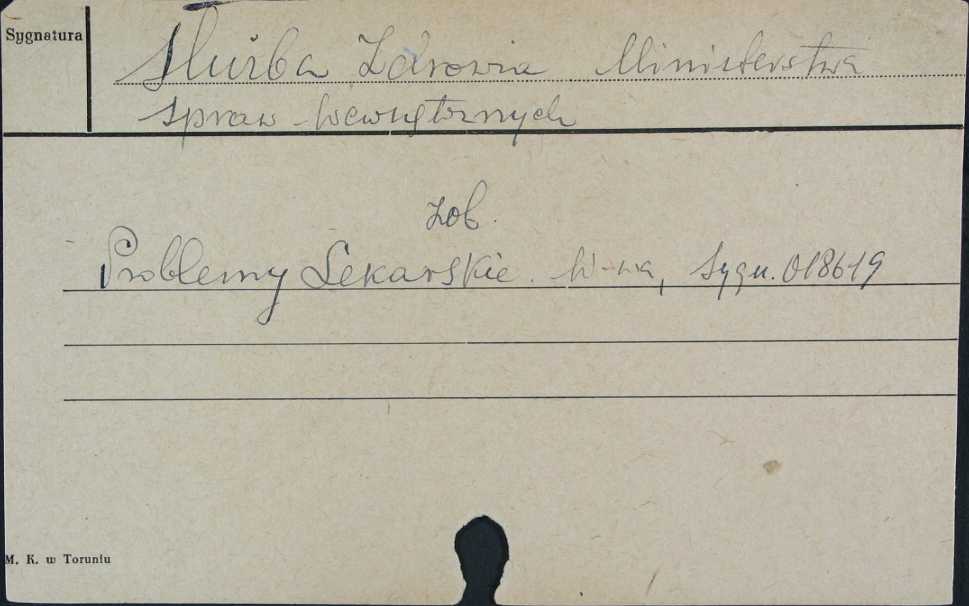 Sygnatura
Służba Zdrowia Ministerstwa
spraw Wewnętrznych
zob.
Problemy Lekarskie. W-wa, Sygn. 018619
M. K. w Toruniu